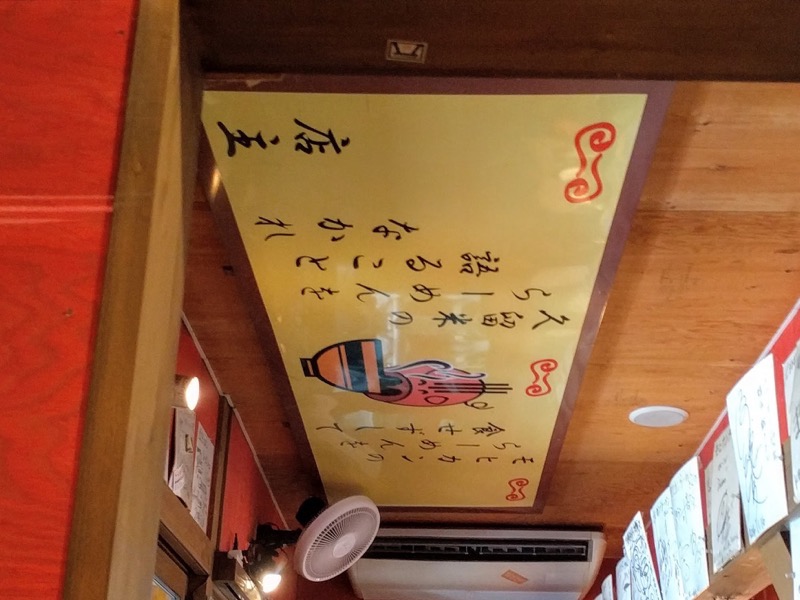 モヒカンの
らーめんを
食せずして
久留米の
らーめんを
語ること
なかれ
店主